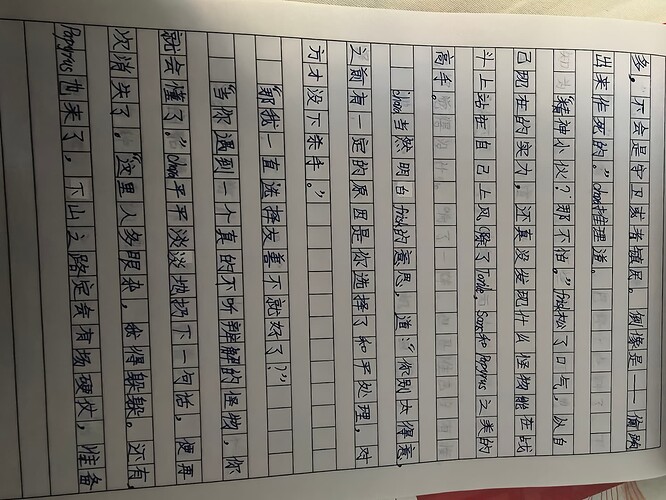 多，不会是守卫或者镇民。倒像是——偷跑
出来作死的。”chara推理道。
“精神小伙？那不怕。”frisk松了口气，从自
己现在的实力，还真没发现什么怪物能在战
斗上站在自己上风（除了Toriel，Sans和Papyrus之类的
高手。
chara当然明白frisk的意思，道：“你别太得意，
之前有一定的原因是你选择了和平处理，对
方才没下杀手。”
“那我一直选择友善不就好了？”
“当你遇到一个真的不听辩解的怪物，你
就会懂了。”chara平平淡淡地扔下一句话，便再
次消失了。“这里人多眼杂，我得躲躲。还有，
Papyrus出来了，下山之路定会有场硬仗，准备